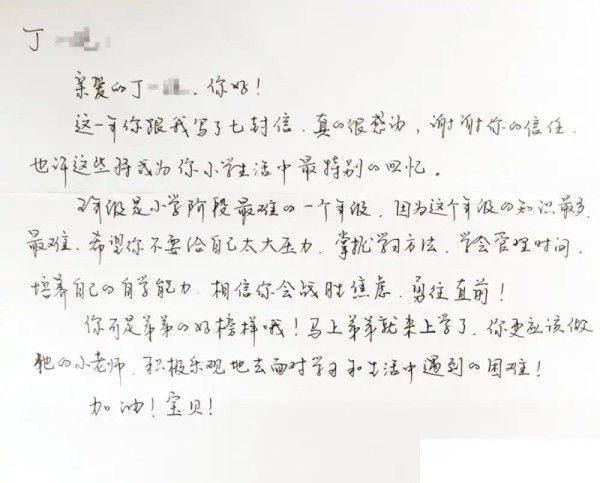 丁一
亲爱的丁一，你好！
这一年你跟我写了七封信，真的很感动，谢谢你的信任，
也许这些将成为你小学生活中最特别的回忆。
年级是小学阶段最难的一个年级，因为这个年级的知识最多，
最难，希望你不要给自己太大压力，掌握学习方法，学会管理时间，
培养自己的自学能力，相信你会战胜焦虑，勇往直前！
你可是弟弟的好榜样哦！马上弟弟就来上学了，你更应该做
他的小老师，积极乐观地去面对学习和生活中遇到的困难！
加油！宝贝！